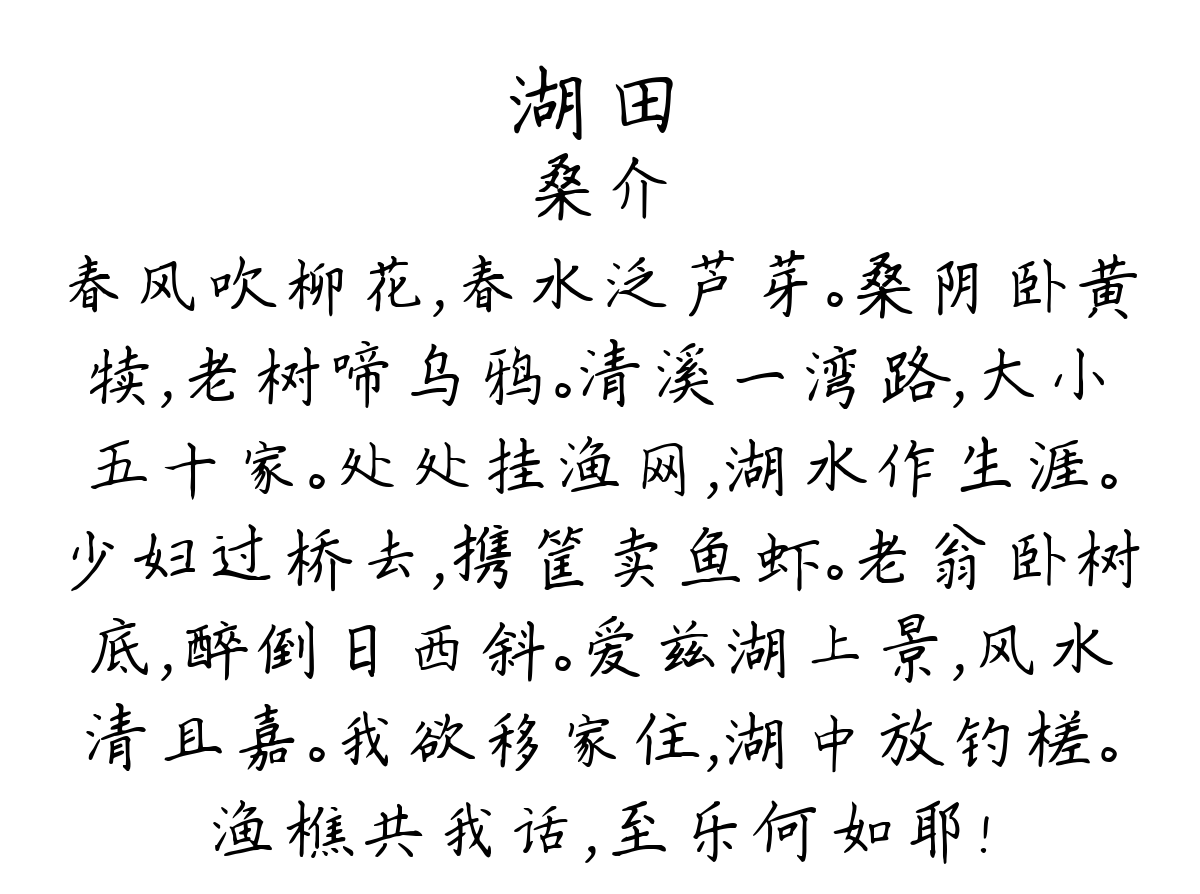 湖田
桑介
春风吹柳花,春水泛芦芽。桑阴卧黄
犊,老树啼乌鸦。清溪一湾路,大小
五十家。处处挂渔网,湖水作生涯。
少妇过桥去,携筐卖鱼虾。老翁卧树
底,醉倒日西斜。爱兹湖上景,风水
清且嘉。我欲移家住,湖中放钓槎。
渔樵共我话,至乐何如耶!